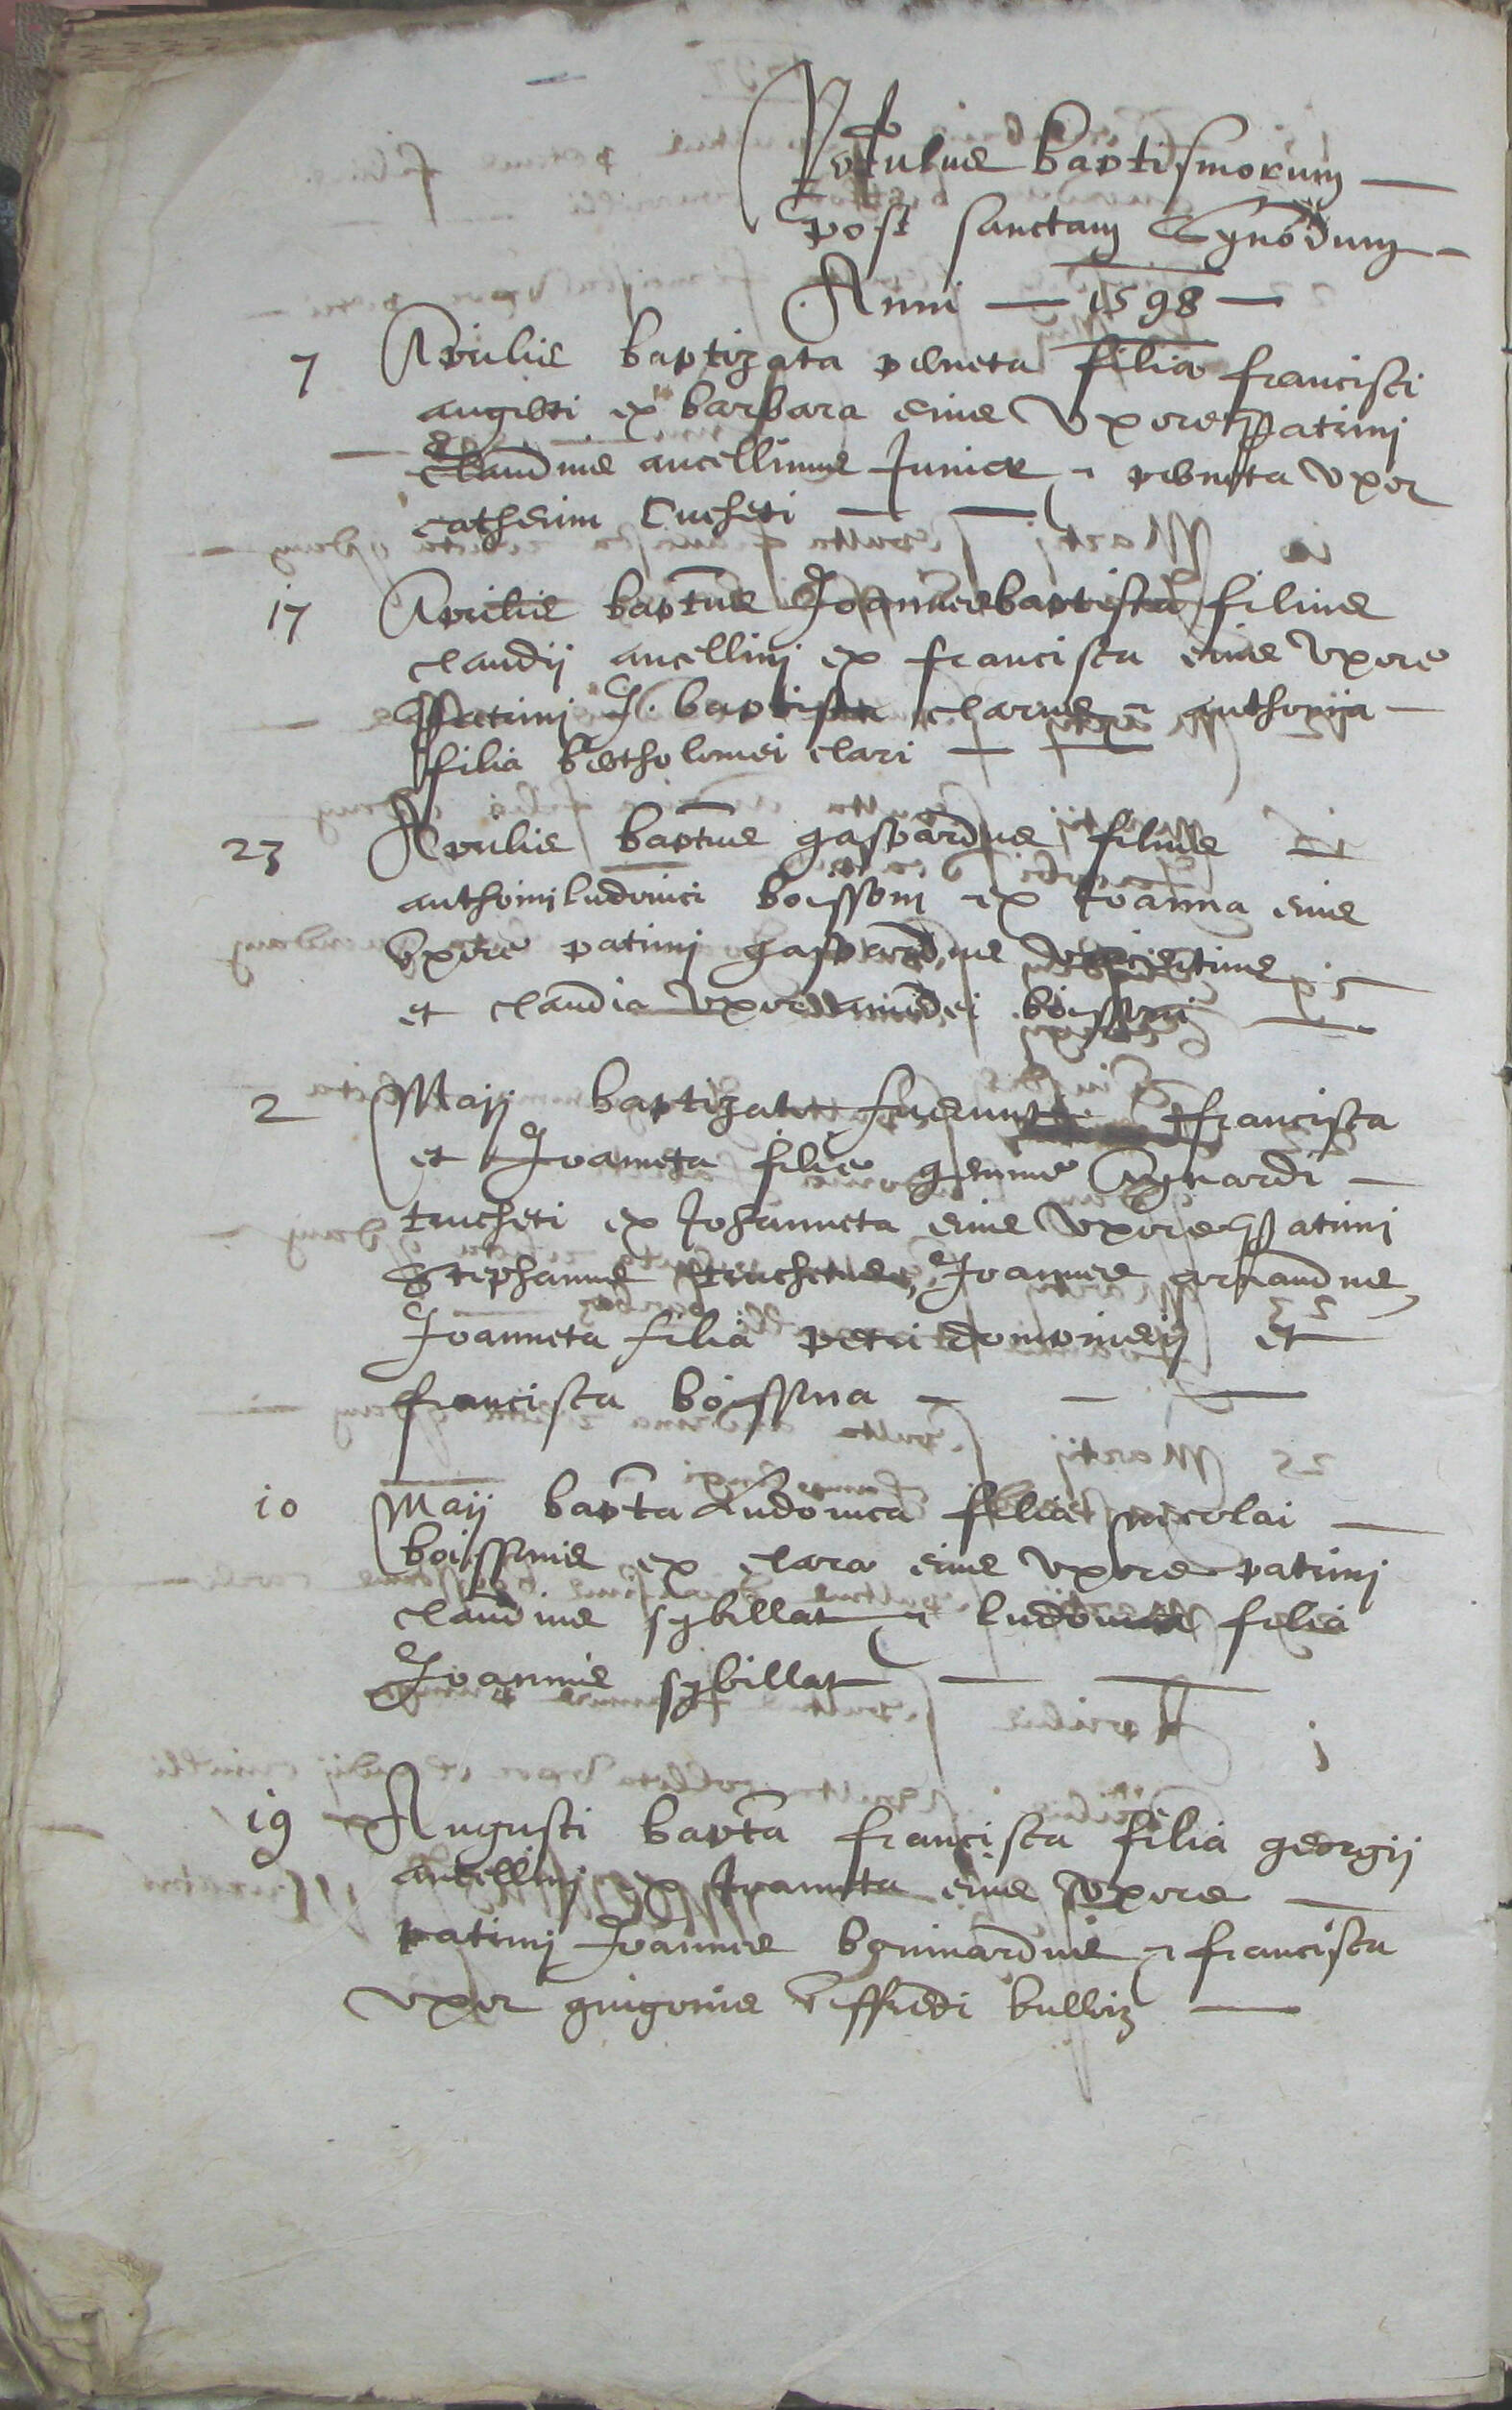 Rotulus baptismorum
post sanctam Synodum
Anni 1598
7 Aprilis baptizata perneta filia francisci
ex barbara eius Uxore patrini
claudius ancellinus Junior et perneta Uxor
catherini
17 Aprilis baptus Joannesbaptista filius
claudij ancellinj ex francisca eius Uxore
patrinj J. baptista clarus et anthonia
filia bertholomei clari
23 Aprilis baptus gaspardus filius
anthonij ludovici boissoni ex Joanna eius
Uxore patrinj gaspardus
et claudia Uxor boissoni
2 Maij baptizate fuerunt francisca
et Joanneta filie gemine aynardi
trucheti ex Johanneta eius Uxore patrini
Stephanus truchetus, Joannes arnaudus
Joanneta filia petri et
francisca boissona
10 Maij bapta Ludovica filia nicolai
boissonis ex clara eius Uxore patrinj
claudius sybillat et ludovica filia
Joannis sybillat
19 Augusti bapta francisca filia georgij
ancellinj ex Joanneta eius Uxore
patrinj Joannes et francisca
Uxor guigonis